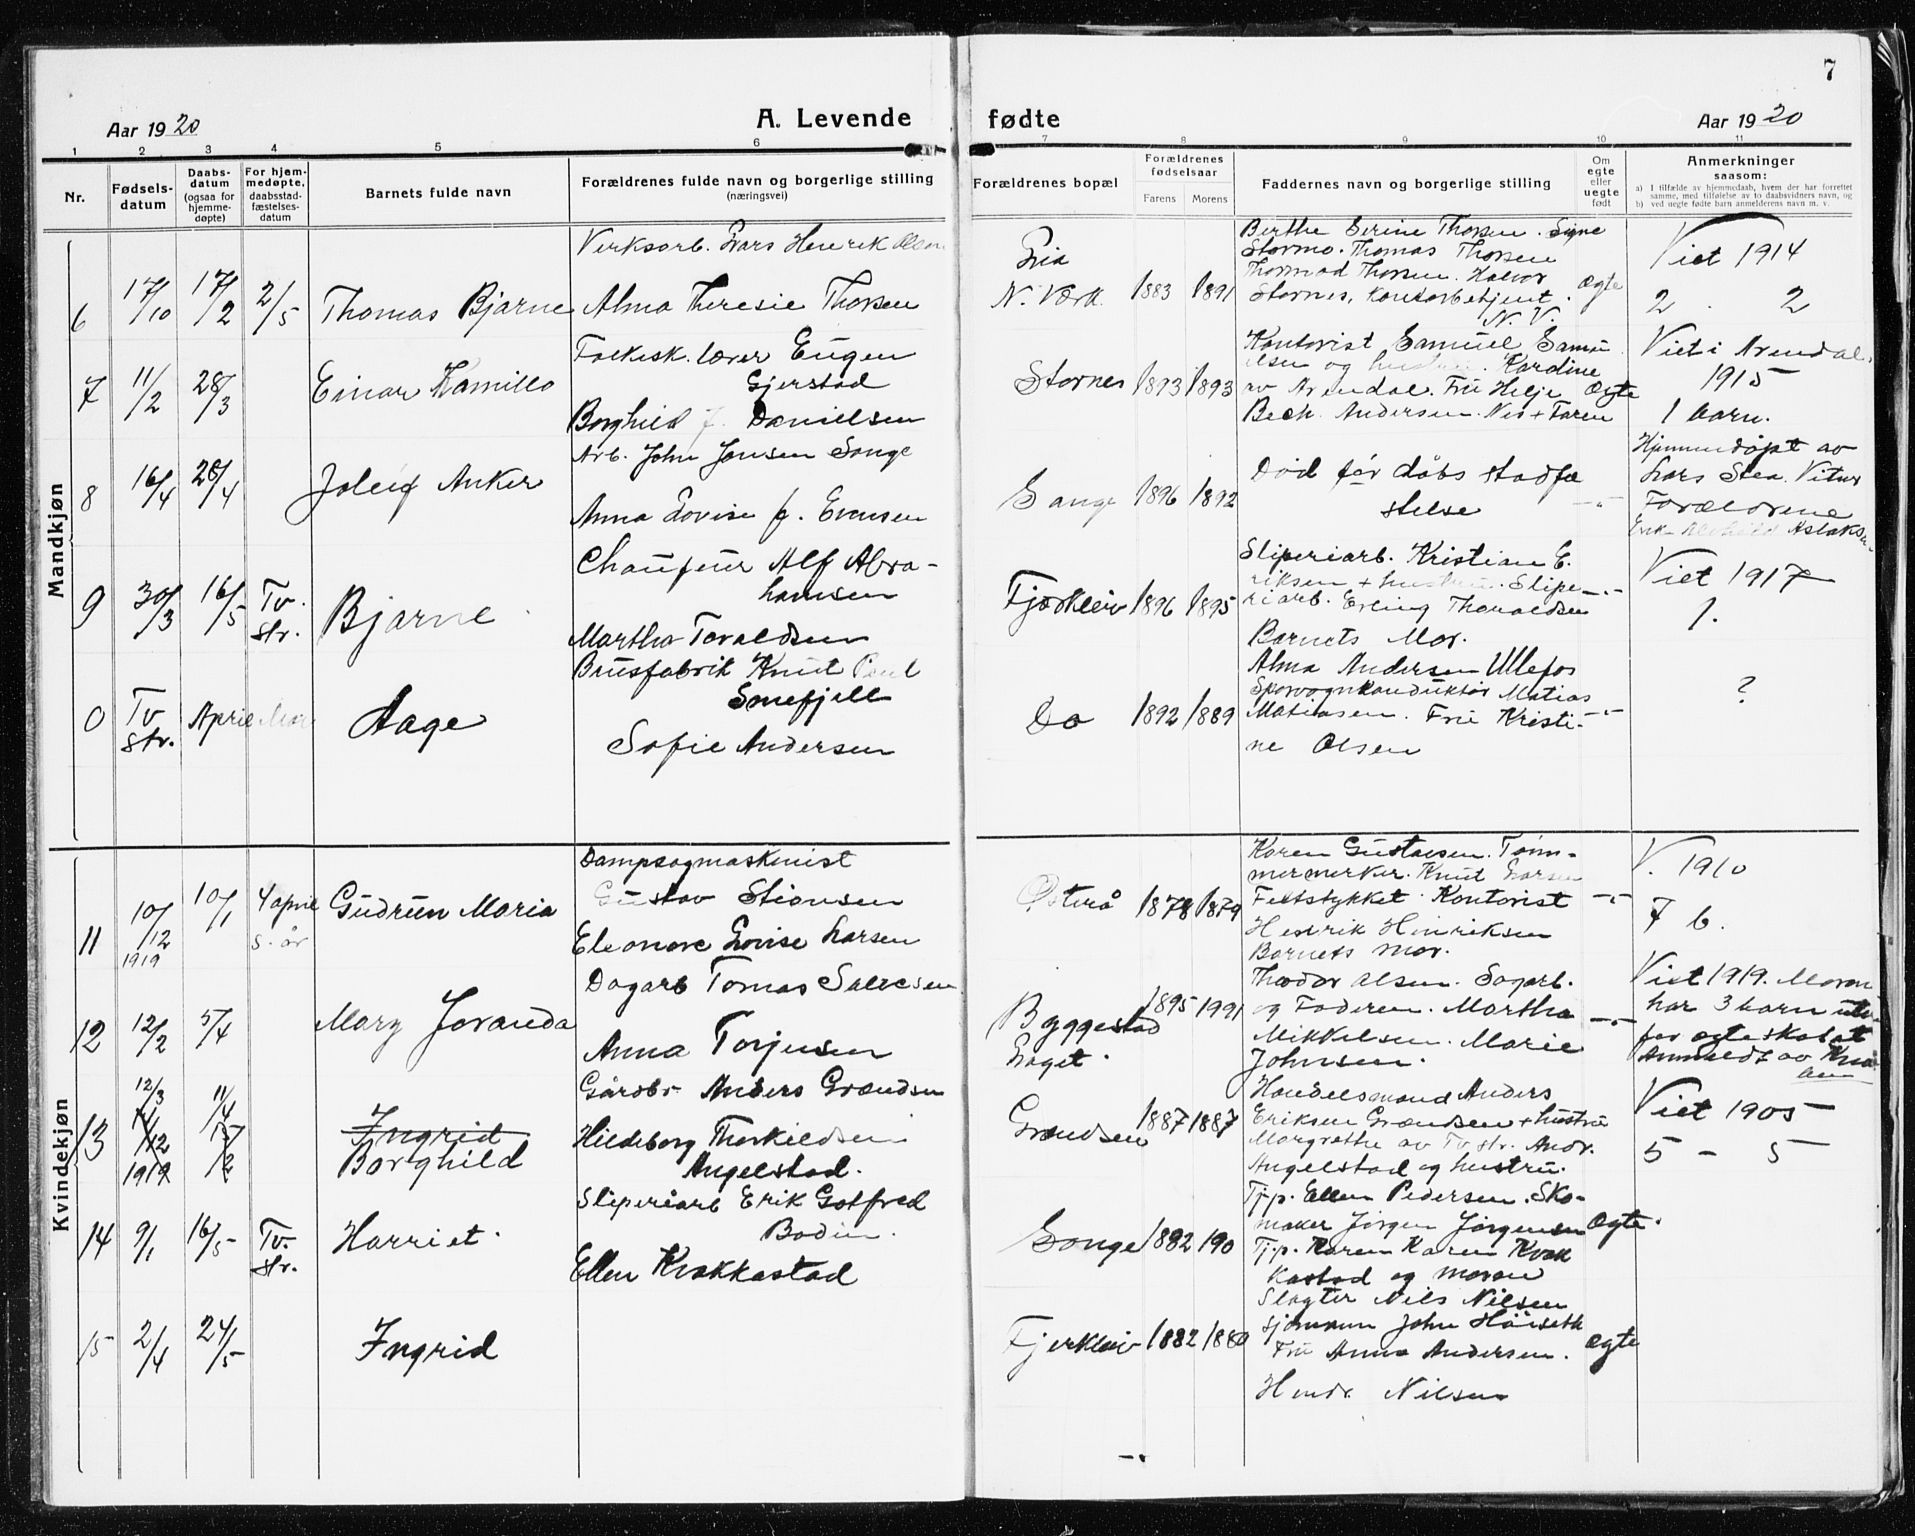 7
Aar 1920
A. Levende fødte
Aar 1920
1 2 3 4 5 6 7 8 9 10 11
Nr.
Fødsels-
datum
Daabs-
datum
(ogsaa for
hjemme-
døpte)
For hjem-
medøpte,
daabsstad-
fæstelses-
datum
Barnets fulde navn
Forældrenes fulde navn og borgerlige stilling
(næringsvei)
Forældrenes bopæl
Forældrenes
fødselsaar
Farens
Morens
Faddernes navn og borgerlige stilling
Om
egte
eller
uegte
født
Anmerkninger
saasom:
a) I tilfælde av hjemmedaab, hvem der har forrettet
samme, med tilføielse av to daabsvidners navn, og
b) ved uegte fødte barn anmelderens navn m. v.
Mandkjøn
6
17/10
17/2
2/5
Thomas Bjarne
Verksarb. Lars Henrik Olsen
Alma Theresie Thorsen
N. Værk
1883
1891
Berthe Serine Thorsen. Signe
Stormo. Thomas Thorsen
Thormod Thorsen. Halvor
Stornes, Kontorbetjent.
N. V.
Ægte
Viet 1914
2 . 2
7
11/2
28/3
Einar Kamillo
Folkesk. lærer Eugen
Gjerstad
Borghild f. Danielsen
Stornes
1893
1893
Kontorist Samuel Samu
elsen og hustru Kardine
av Arendal. Fru Helje
Bech Andersen. Nes + Faren
Ægte
Viet i Arendal.
1915
1 barn.
8
16/4
28/4
Anker
Arb. John Jansen Songe
Anna Lovise f. Evensen
Songe
1896
1892
Død før dåbs stadfæ
stelse
Hjemmedøpt av
Lars Stea. Vitner
Forældrene
9
30/3
16/5
Tv.
str.
Bjarne
Chauffeur Alf Abra-
hamsen
Martha Toraldsen
Fjærkleiv
1896
1895
Sliperiarb. Kristian E.
riksen + hustru. Slipe-
riarb. Erling Thoraldsen
Barnets Mor.
Viet 1917
1.
0
Tv
str.
April
Aage
Brusfabrik Knut Paul
Smefjell
Sofie Andersen
Do
1892
1889
Alma Andersen Ullefos
Sporvognkonduktør Matias
Matiasen. Frú Kristi-
ne Olsen
?
Kvindekjøn
11
10/12
1919
10/1
4 april
s. år
Gudrun Maria
Dampsagmaskinist
Gustav Stiansen
Eleonore Lovise Larsen
Østerå
1878
1879
Karen Gustavsen. Tøm-
mermerker. Knut Larsen
Feltstykket. Kontorist
Henrik Hinriksen
Barnets mor.
V. 1910
7 b.
12
12/2
5/4
Mary Joranda
Dagarb Tomas Salvesen
Anna Torjusen
Byggestad
Laget.
1895
1991
Theodor Olsen. Sagarb.
og Faderen. Martha
Mikkelsen. Marie
Johnsen.
Viet 1919. Moren
har 3 barn uten
for ægteskabet
Anmeldt av
13
12/3
11/12
1919
11/4
15/2
Ingrid
Borghild
Gårdbr Anders Grændsen
Hildeborg Thorkildsen
Angelstad.
Grændsen
1887
1887
Handelsmand Anders
Eriksen Grændsen + hustru
Margrethe av Tv. str. Andr.
Angelstad og hustru.
Viet 1905
5 - 5
14
9/1
16/5
Tv.
str.
Harriet.
Sliperiarb Erik Gotfred
Bodin.
Ellen Kvakkestad
Songe
1882
190
Tjp. Ellen Pedersen. Sko-
maker Jørgen Jørgensen
Tjp. Karen Karen Kvak
kestad og moren
Ægte.
15
2/4
24/5
Ingrid
Fjerkleiv
1882
1880
Slagter Nils Nilsen
sjømann John Høiseth
Frú Anna Andersen.
Nilsen
Ægte